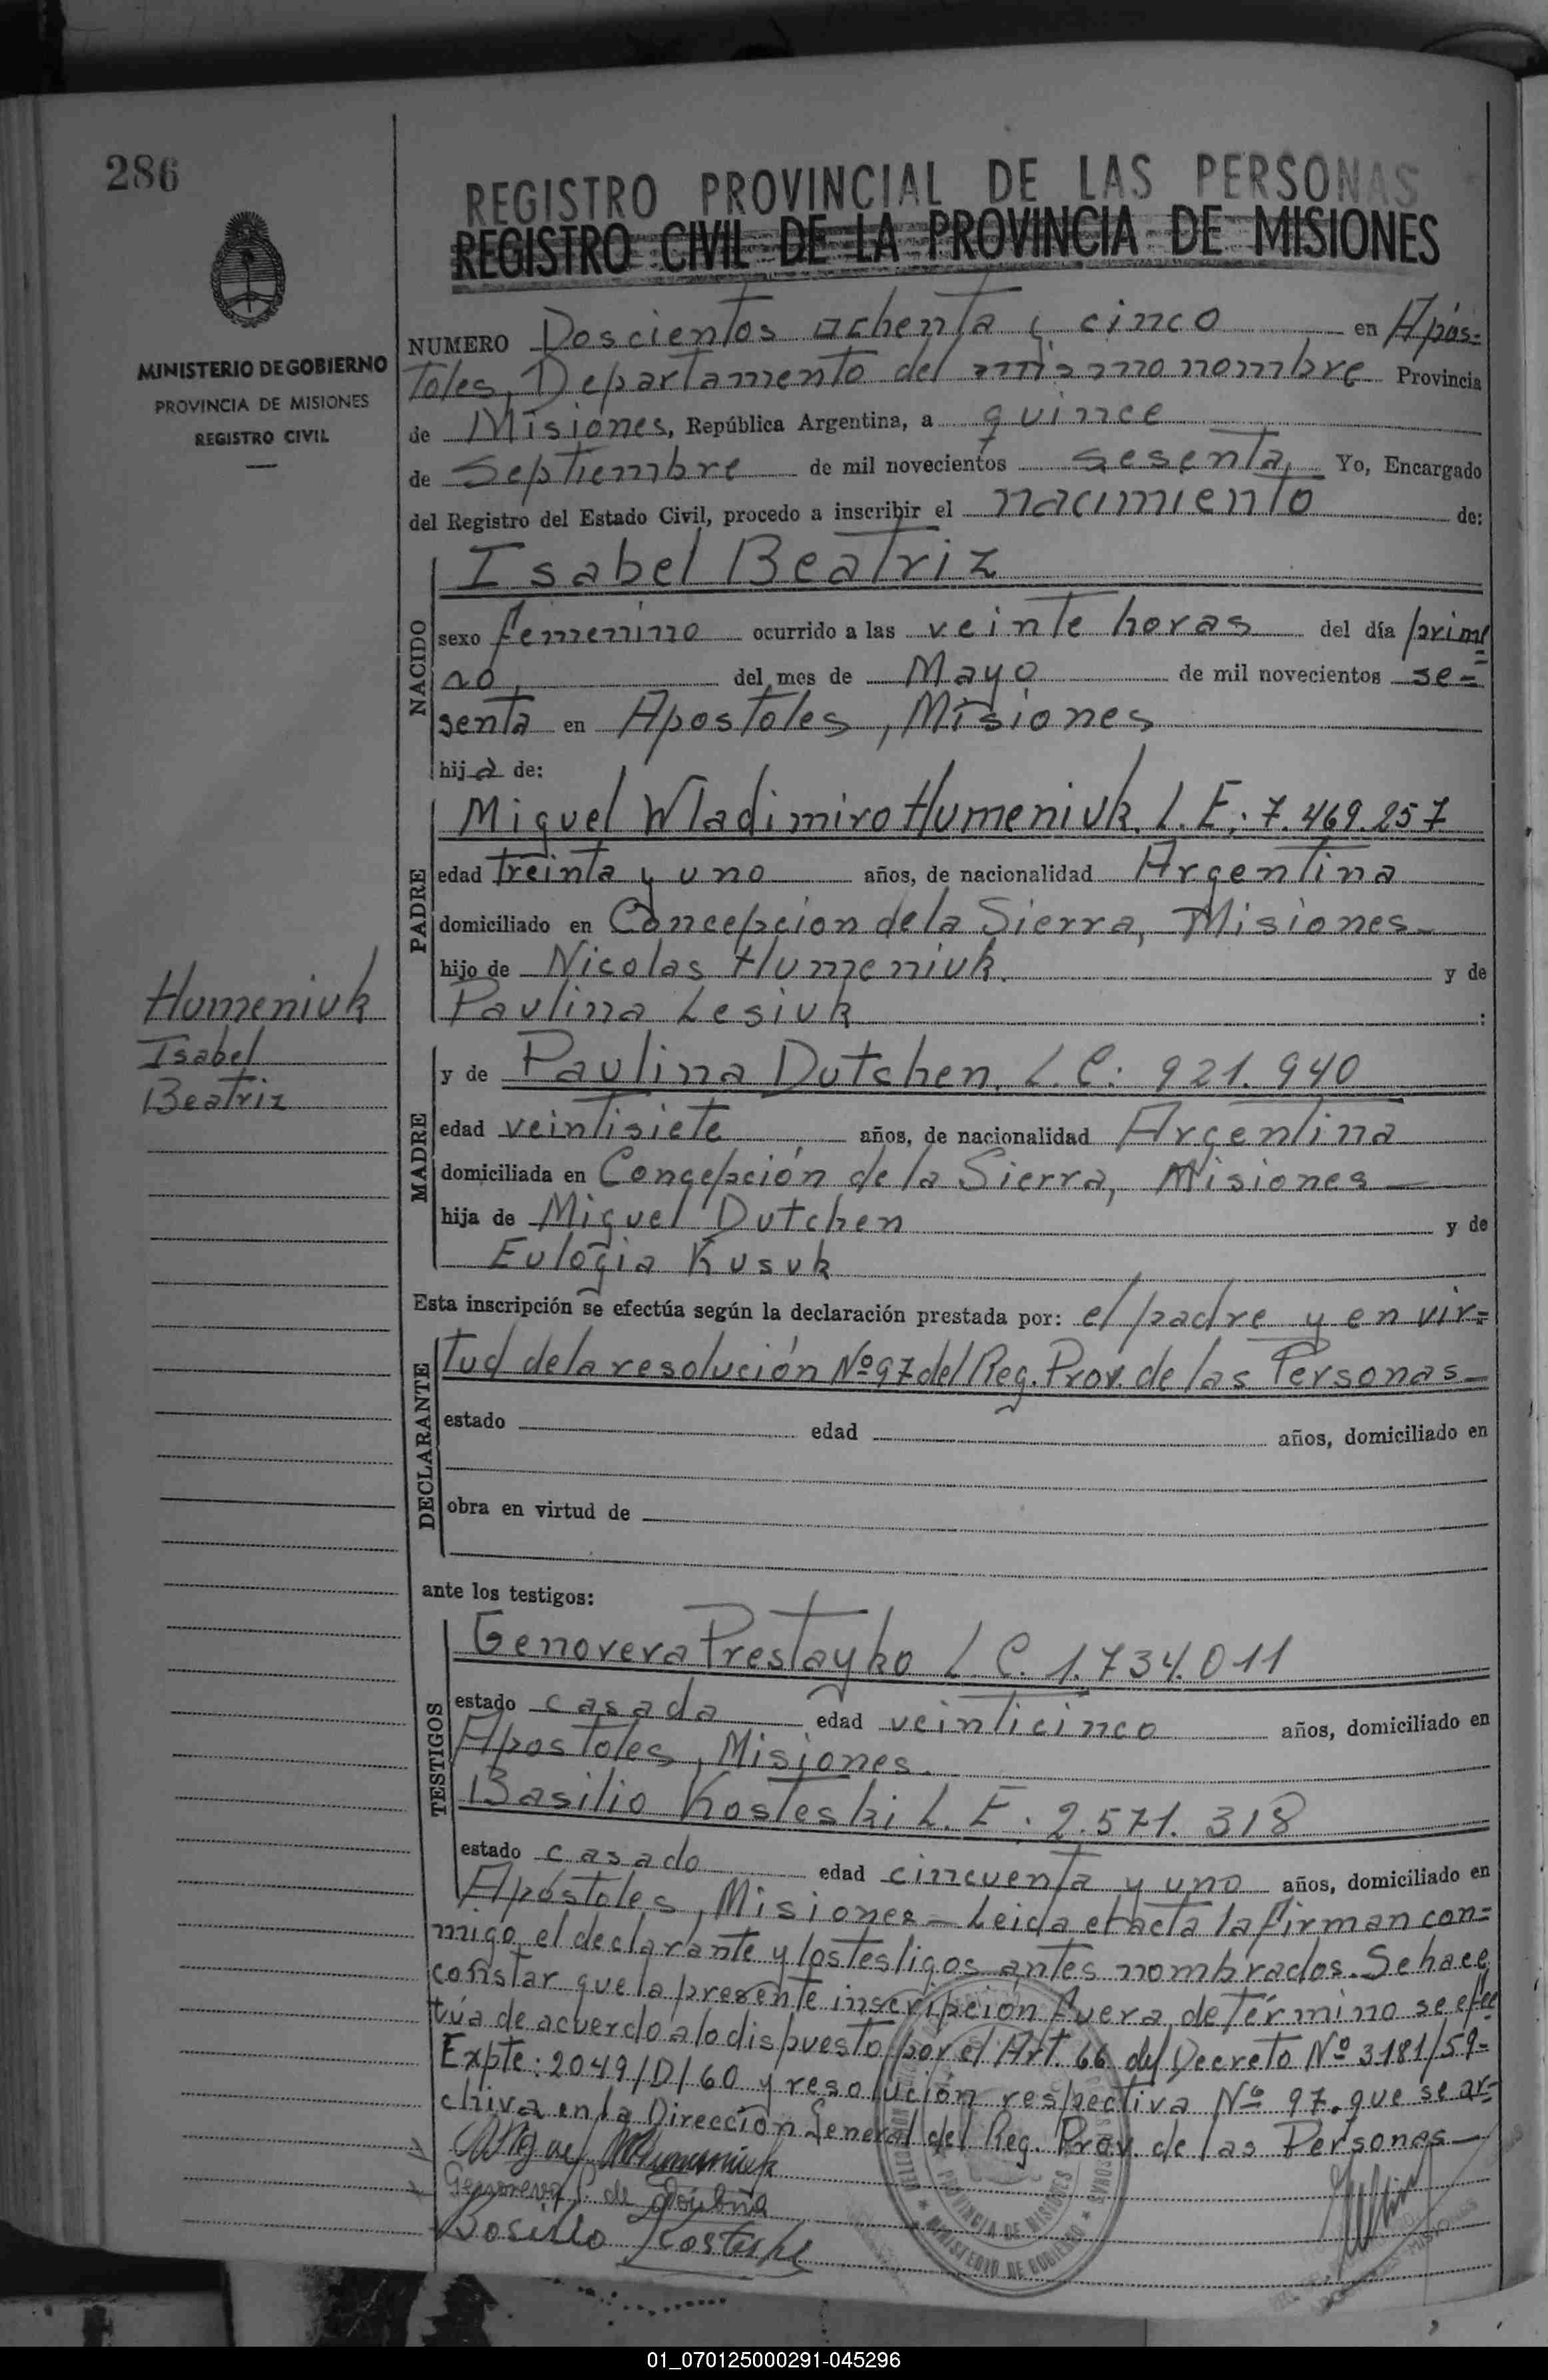 286
MINISTERIO DE GOBIERNO
PROVINCIA DE MISIONES
REGISTRO CIVIL
REGISTRO PROVINCIAL DE LAS PERSONAS
REGISTRO CIVIL DE LA PROVINCIA DE MISIONES
NUMERO Doscientos ochenta y cinco en Após=
toles, Departamento del mismo nombre Provincia
de Misiones, República Argentina, a quince
de Septiembre de mil novecientos sesenta, Yo, Encargado
del Registro del Estado Civil, procedo a inscribir el nacimiento de:
NACIDO
Isabel Beatriz
sexo femenino ocurrido a las veinte horas del día prime
ro, del mes de Mayo de mil novecientos se=
senta en Apostoles, Misiones
hija de:
PADRE
Miguel Wladimiro Humeniuk. L. E.: 7.469.257
edad treinta y uno años, de nacionalidad Argentina
domiciliado en Concepcion de la Sierra, Misiones-
hijo de Nicolas Humeniuk. y de
Paulina Lesiuk :
Humeniuk
Isabel
Beatriz
MADRE
y de Paulina Dutchen. L. C: 921.940
edad veintisiete años, de nacionalidad Argentina
domiciliada en Concepción de la Sierra, Misiones —
hija de Miguel Dutchen y de
Eulogia Kusuk
Esta inscripción se efectúa según la declaración prestada por: el padre y en vir=
DECLARANTE
tud de la resolución Nº 97 del Reg. Prov. de las Personas-
estado edad años, domiciliado en
obra en virtud de
ante los testigos:
TESTIGOS
Genoveva Prestayko L. C. 1.734.011
estado casada edad veinticinco años, domiciliado en
Apostoles, Misiones.
Basilio Kosteski L. E. 2.571.318
estado casado edad cincuenta y uno años, domiciliado en
Apóstoles, Misiones — Leida el acta la firman con=
migo, el declarante y los testigos antes nombrados. Se hace
constar que la presente inscripcion fuera de término se efec
túa de acuerdo a lo dispuesto por el Art. 66 del Decreto Nº 3181/59-
Expte: 2049/D/60 y resolución respectiva Nº 97. que se ar=
chiva en la Dirección General del Reg. Prov. de las Personas —
Miguel W Humeniuk
Genoveva P. de
Bosilio Kosteski
PROVINCIA DE MISIONES
MINISTERIO DE GOBIERNO
01_070125000291-045296